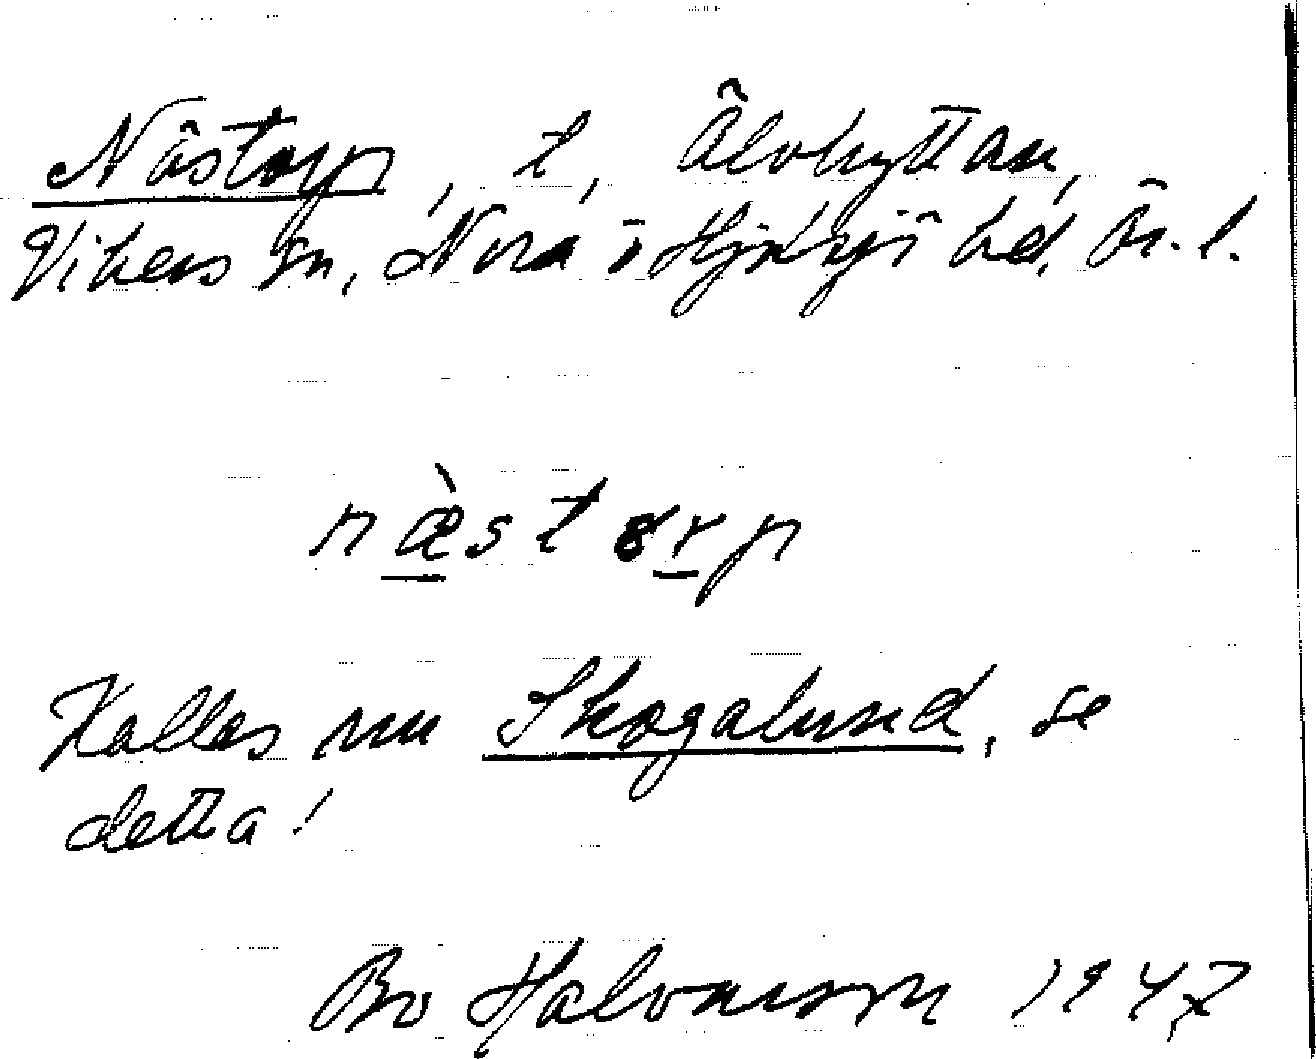 Nästorp, t, Älvhyttan,
Vikers sn, Nora o Hjulsjö hd, Ör. l.
næ̀storp
Kallas nu Skogalund, se
detta!
Bo Halvarson 1947